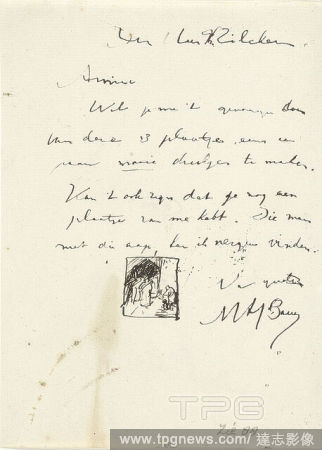 Den Heer Ph Zilcken
Amice
Wil je me 't genoegen doen
van deze 3 plaatjes eens een
paar mooie drukjes te maken.
Kan 't ook zijn dat je nog een
plaatje van me hebt. Die man
met die aap, kan ik nergens vinden.
MAJ Bauer
TPG
www.tpgnews.com/達志影像